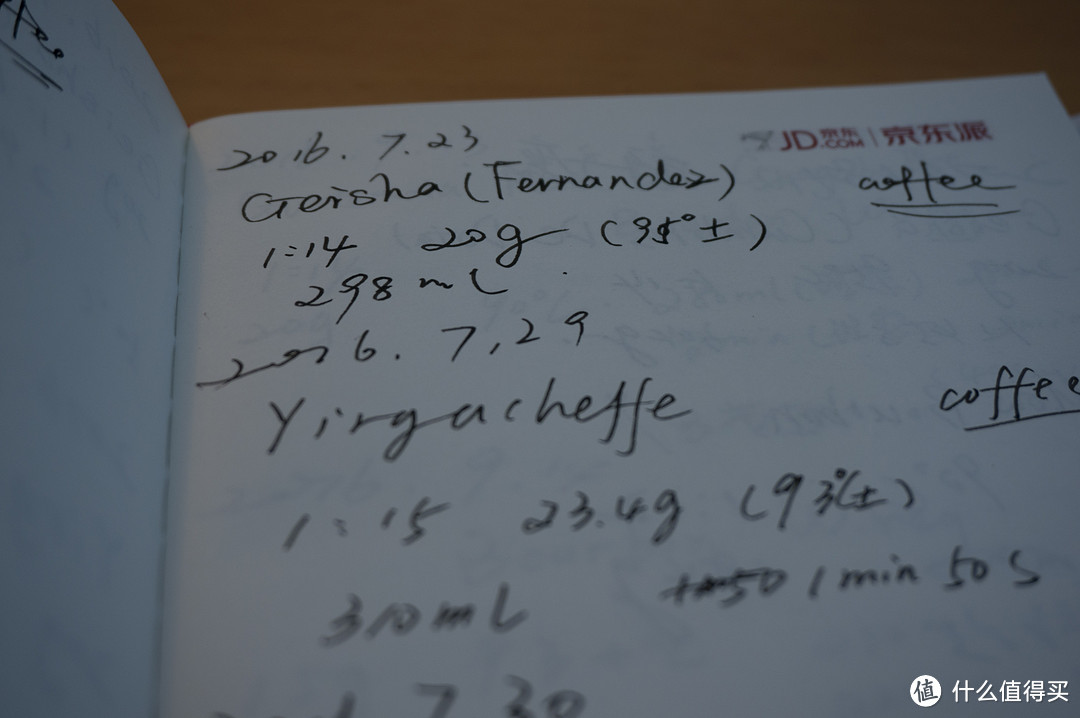 JD.COM 京东 | 京东派
2016.7.23
Geisha (Fernandez) coffee
1:14 20g (95°±)
298 mL
2016.7,29
Yirgacheffe coffee
1:15 23.4g (93℃±)
310mL 1 min 50 S
7.30
值 什么值得买